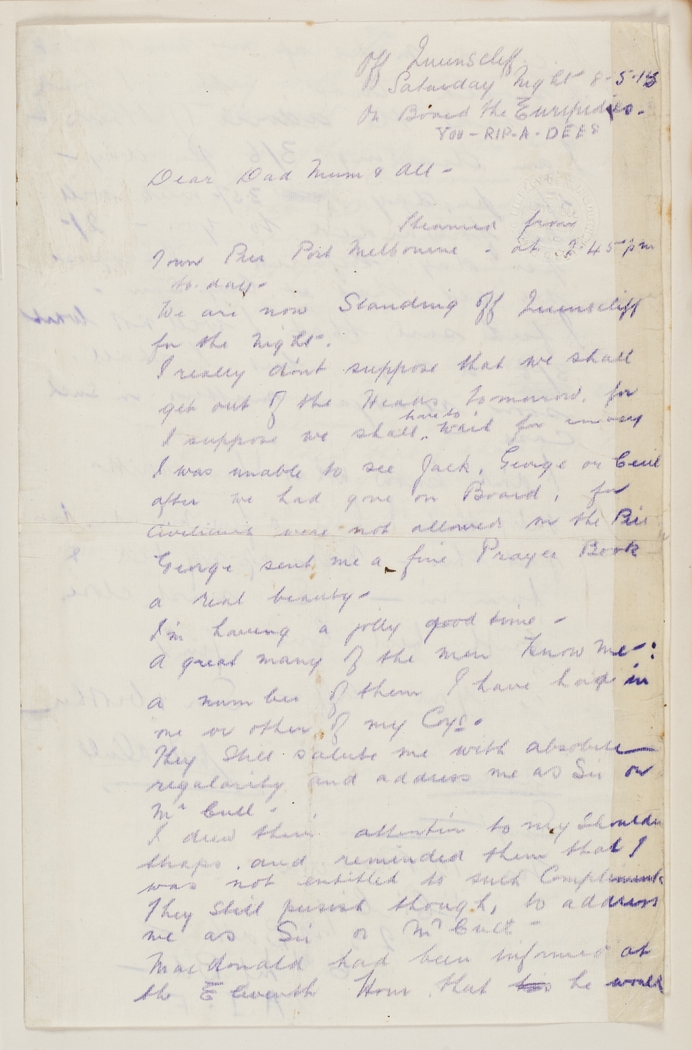 Off Queenscliff
Saturday Night 8-5-15
On Board the Euripides.
YOU-RIP-A-DEES
Dear Dad Mum & All -
Steamed from
Town Pier Port Melbourne - at 2.45 pm
to-day -
We are now Standing Off Queenscliff
for the Night -.
I really don't suppose that we shall
get out of the Heads tomorrow, for
I suppose we shall have to wait for
I was unable to see Jack, George or Cecil
after we had gone on Board, for
Civilians were not allowed on the Pier
George sent me a fine Prayer Book
a real beauty -
I'm having a jolly good time -
A great many of the men know me - :
a number of them I have had in
one or other of my Coys.
They still salute me with absolute
regularity and address me as Sir or
Mr Cull -
I drew their attention to my Shoulder
straps, and reminded them that I
was not entitled to such Compliments
They still persist though, to address
me as Sir or Mr Cull -
Macdonald had been informed at
the Eleventh Hour that he would